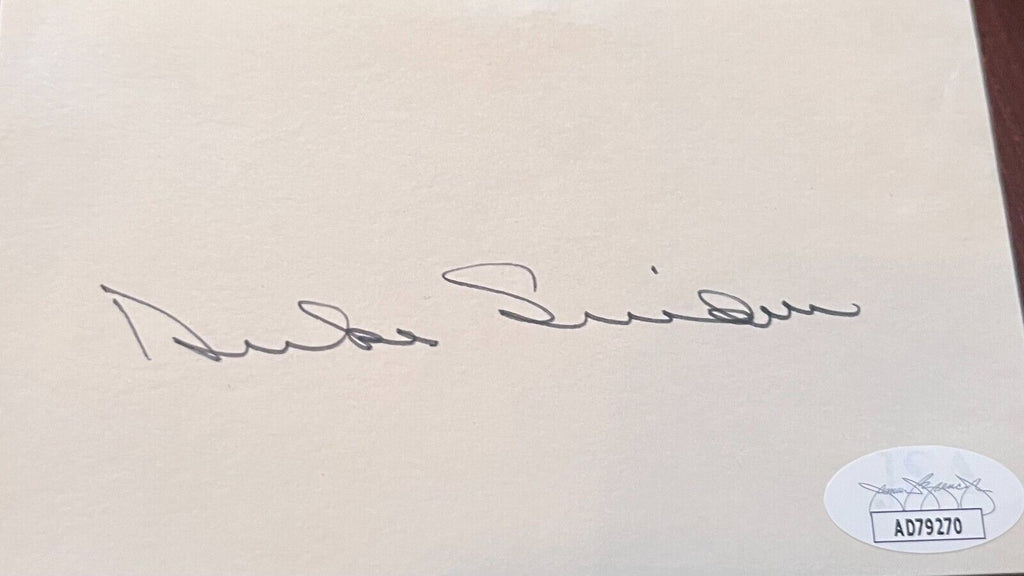 Duke Snider
JSA
James Spence Jr
AD79270